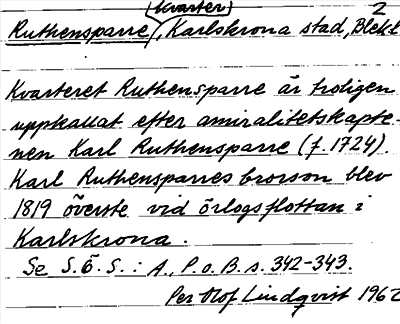 (kvarter) 2
Ruthensparre, Karlskrona stad, Blek. l
Kvarteret Ruthensparre är troligen
uppkallat efter amiralitetskapte-
nen Karl Ruthensparre (f. 1724).
Karl Ruthensparres brorson blev
1819 överste vid örlogsflottan i
Karlskrona.
Se S.Ö.S.: A., P. o. B. s. 342-343.
Per Olof Lindqvist 1962